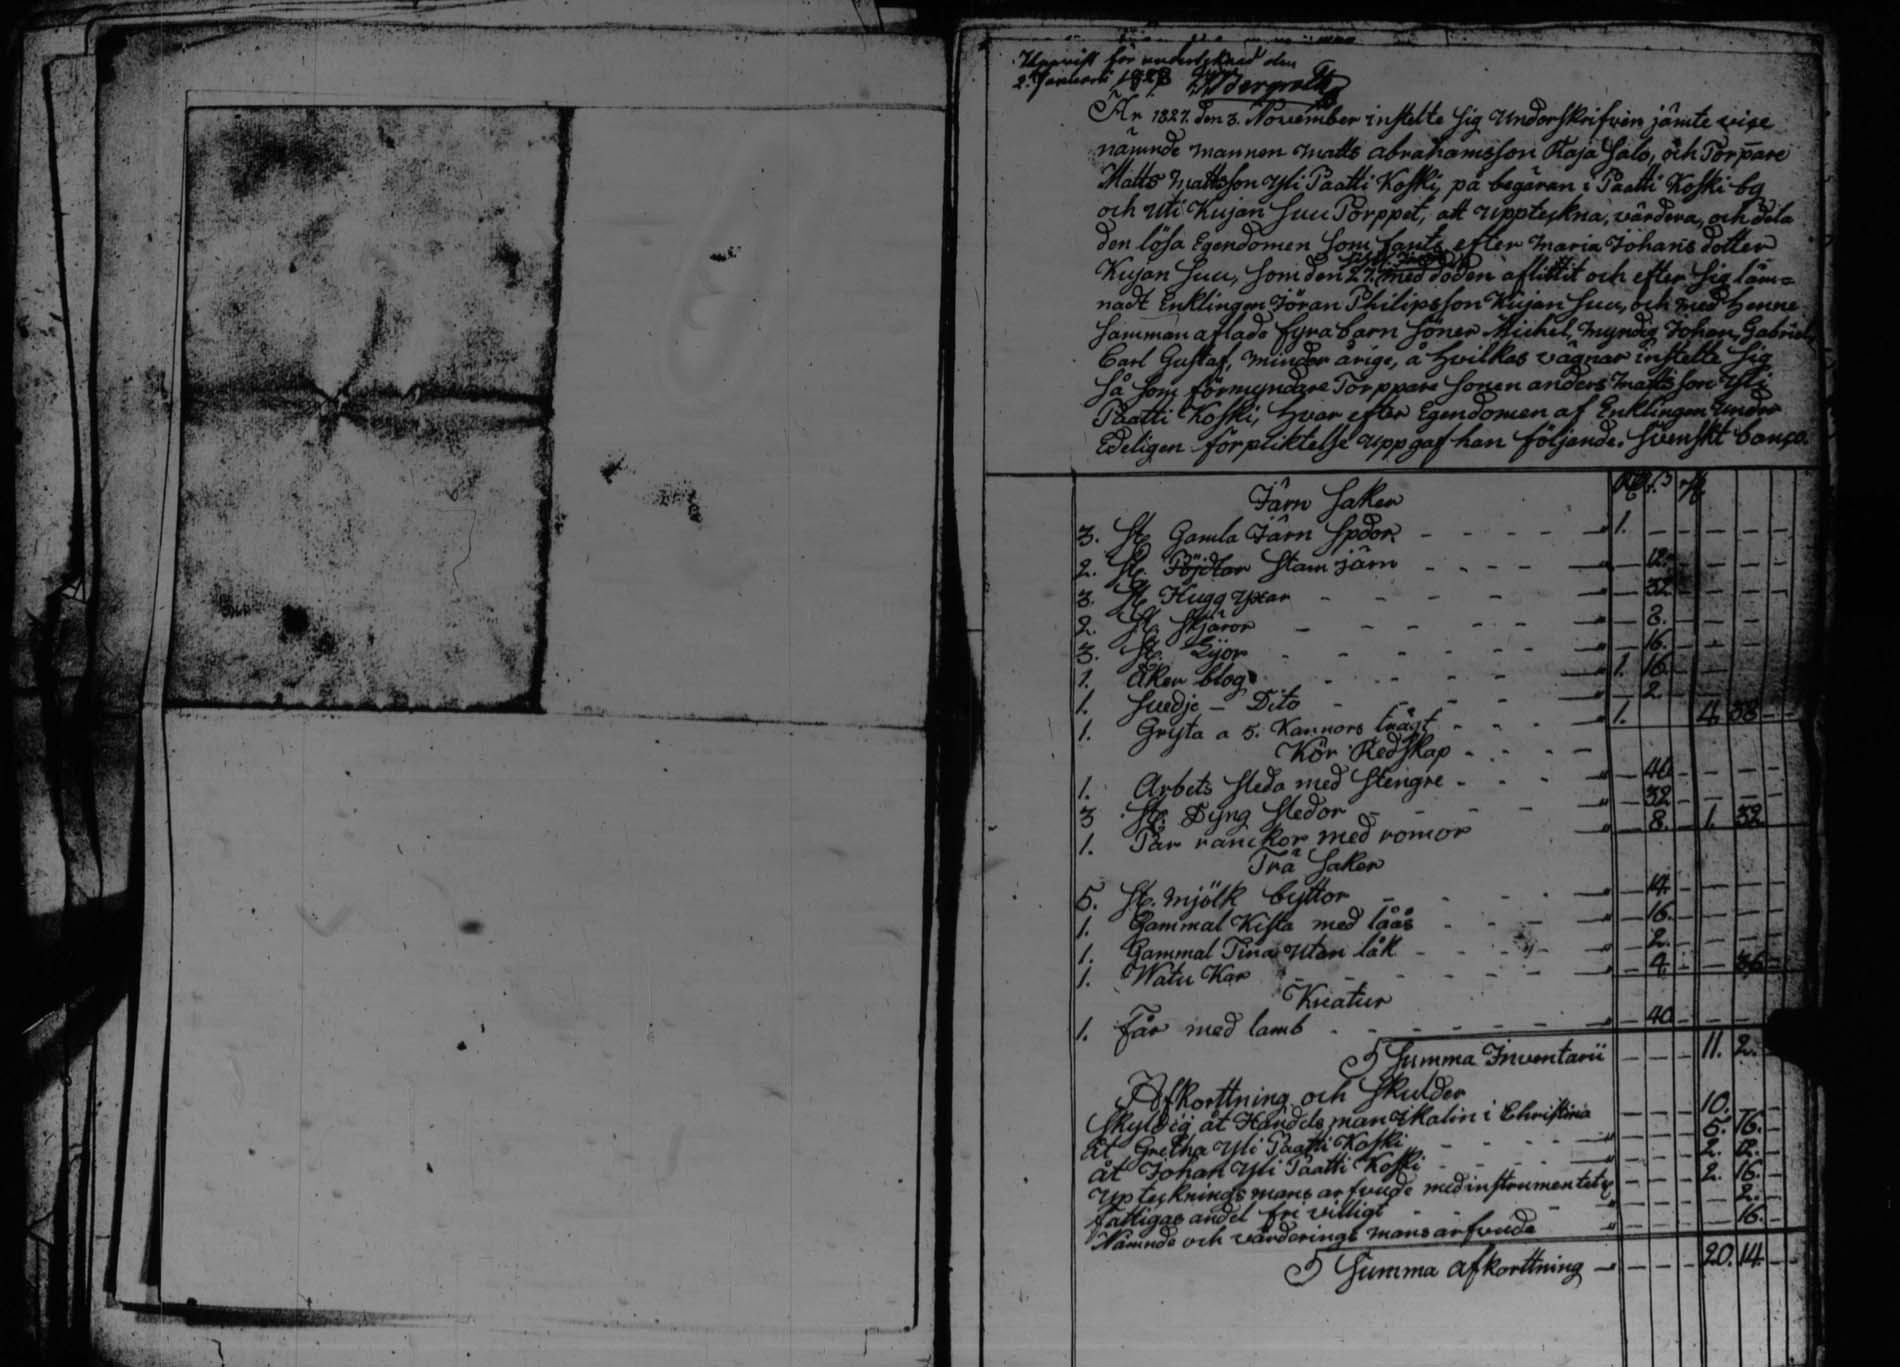 Uppvist för underskned den
2. Januarii 1828
År 1827. den 3. November instelte sig Underskrifven jämte vise
nämnde mannen Matts Abrahamsson Raja Salo, och Torpare
Matts Mattsson Yli Paatti Koski, på begäran i Paatti Koski by
och uti Kujan Suu Torppet, att Uppteckna, värdera, och dela
den lösa Egendomen som fants efter Maria Johans dotter
Kujan Suu, som den 27. med döden aflittit och efter sig läm=
nadt Enklingen Jöran Philipsson Kujan Suu, och med Henne
samman aflade fyra barn söner Michel, myndig Johan, Gabriel,
Carl Gustaf, minder årige, å Hvilkas vägnar instelte sig
så som förmyndare Torppare sonen Anders Mattsson Yli
Paatti Koski, Hvar efter Egendomen af Enklingen Under
Edeligen förpliktelse uppgaf han följande. Svenskt banco.
Järn Saker
3. St. Gamla Järn Spdor - - - - " 1. - - - - -
2. St. Stam järn - - - - " - 12. - - - -
3. St. Hugg yxar - - - - " - 32 - - - -
2. St. Skjäror - - - - " - 3. - - - -
3. St. Lijor - - - - " - 16. - - - -
1. Åker blog - - - - " 1. 16. - - - -
1. Suedje - Dito - - - - " - 2. - - - -
1. Gryta a 5. Kannors trågt - - - " 1. 4. 38 - -
Kör Redskap - - - -
1. Arbets Sleda med Stengre - - - " - 40 - - - -
3 St. Dyng Sledor - - - - " - 32 - - - -
1. Par ranckor med romor " - 8. - 1. 32
Trä Saker
5. St. Mjölk byttor - - - - " - 14. - - - -
1. Gammal Kista med låås - - - " - 16. - - - -
1. Gammal Tina utan låk - - - " - 2. - - - -
1. Watu Kar - - - - " - 4. - - 36 -
Kreatur
1. Får med lamb - - - - " - 40 - - - -
Summa Inventarii - - - 11. 2.
Afkorttning och Skulder
Skyldig åt Handels man i Christina - - - 10. - -
åt Gretha Yli Paatti Koski - - - 5. 16. -
åt Johan Yli Paatti Koski - - - 2. 12. -
Uptecknings mans arfvude med instrumentet - - - 2. 16. -
fattigas andel fri villigt - - - - 2. -
Nämnde och värderings mans arfvude " - - - - 16. -
Summa afkorttning - - - - 20. 14. - -